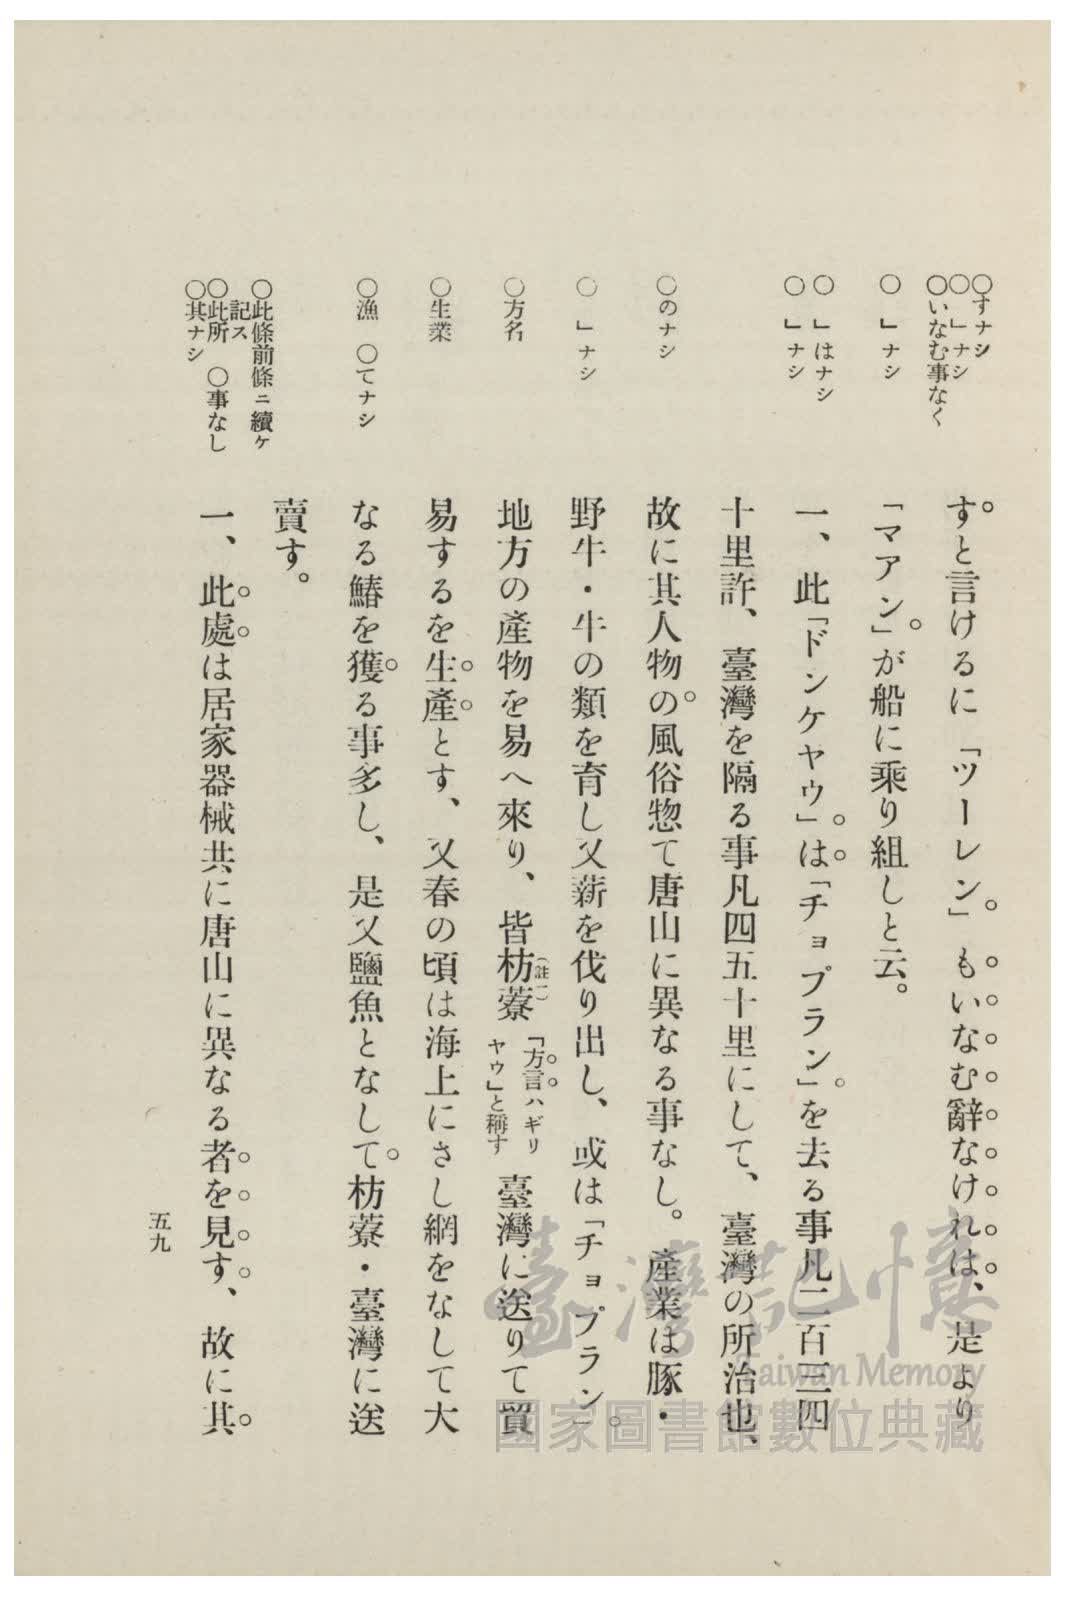 ○すナシ
○」ナシ
○いなむ事なく
○」ナシ
○」はナシ
○」ナシ
○のナシ
○」ナシ
○方名
○生業
○漁　○てナシ
○此條前條ニ續ケ
記ス
○此所　○事なし
○其ナシ
すと言けるに「ツーレン」もいなむ辭なけれは、是より
「マアン」が船に乘り組しと云。
一、此「ドンケヤウ」は「チョプラン」を去る事凡二百三四
十里許、臺灣を隔る事凡四五十里にして、臺灣の所治也、
故に其人物の風俗惣て唐山に異なる事なし。產業は豚・
野牛・牛の類を育し又薪を伐り出し、或は「チョプラン」
地方の產物を易へ來り、皆枋藔（註一）「方言ハギリヤウ」と稱す臺灣に送りて貿
易するを生產とす、又春の頃は海上にさし網をなして大
なる鰆を獲る事多し、是又鹽魚となして枋藔・臺灣に送
賣す。
一、此處は居家器械共に唐山に異なる者を見す、故に其
五九
臺灣記憶
Taiwan Memory
國家圖書館數位典藏